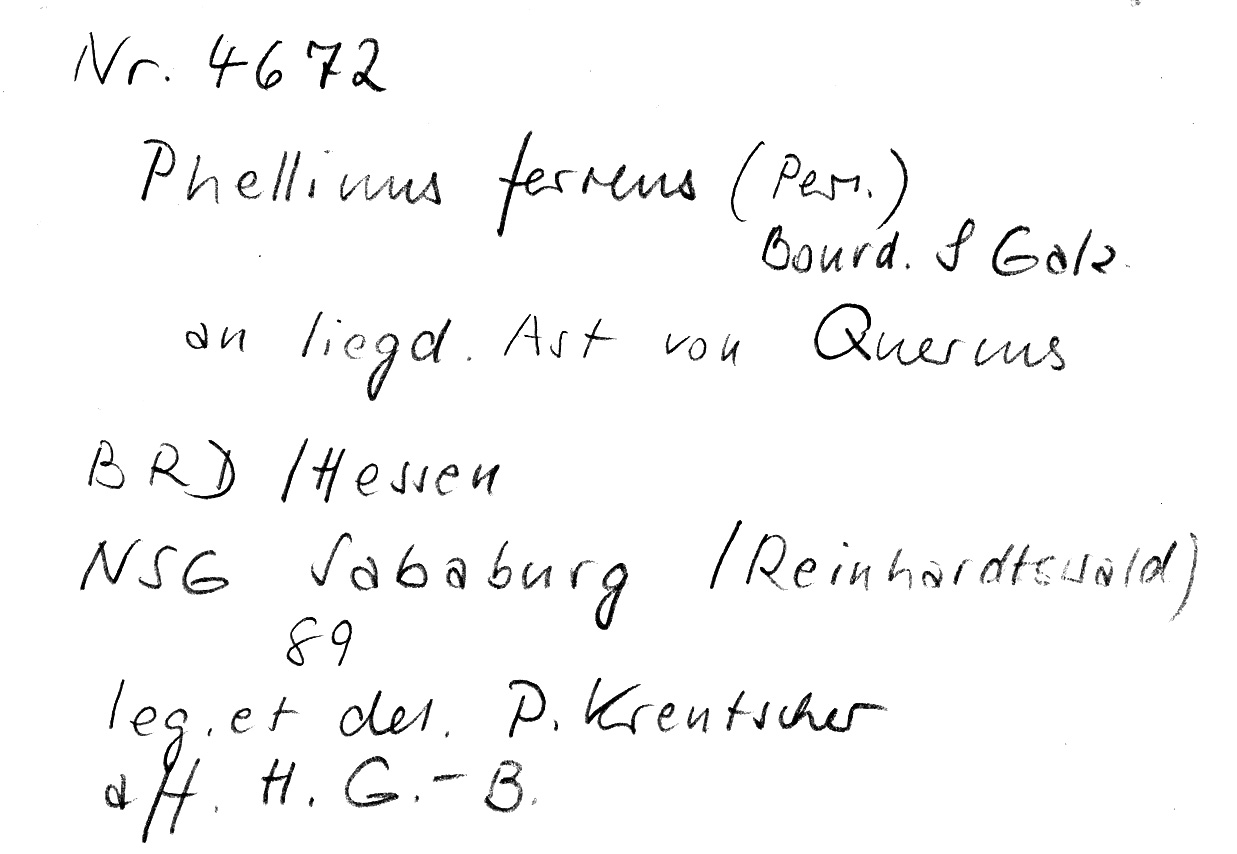 Nr. 4672
Phellinus ferreus (Pers.)
Bourd. & Galz.
an liegd. Ast von Quercus
BRD /Hessen
NSG Sababurg /Reinhardtswald)
89
leg. et det. P. Kreutscher
H. G.-B.